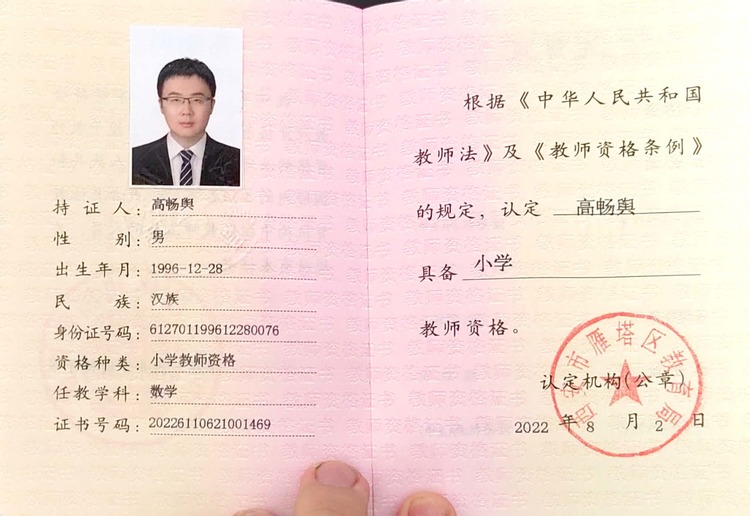 持证人：高畅舆
性别：男
出生年月：1996-12-28
民族：汉族
身份证号码：612701199612280076
资格种类：小学教师资格
任教学科：数学
证书号码：20226110621001469
根据《中华人民共和国
教师法》及《教师资格条例》
的规定，认定 高畅舆
具备 小学
教师资格。
西安市雁塔区教育局
认定机构(公章)
2022 年 8 月 2 日